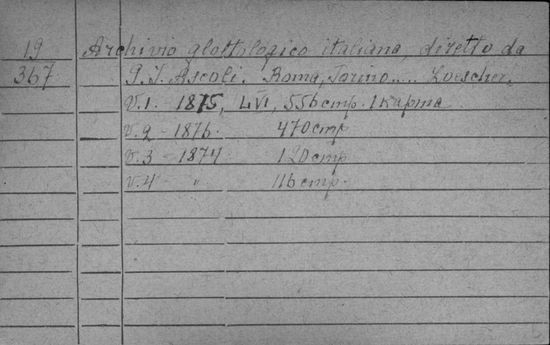 19 Archivio glottologico italiano, diretto da
367 G. I. Ascoli. Roma, Torino.... Loescher.
V. 1. - 1875, LVI, 556 cmp. 1 карта
V. 2 - 1876. 470 cmp
V. 3 - 1874 120 cmp
V. 4 " 116 cmp.